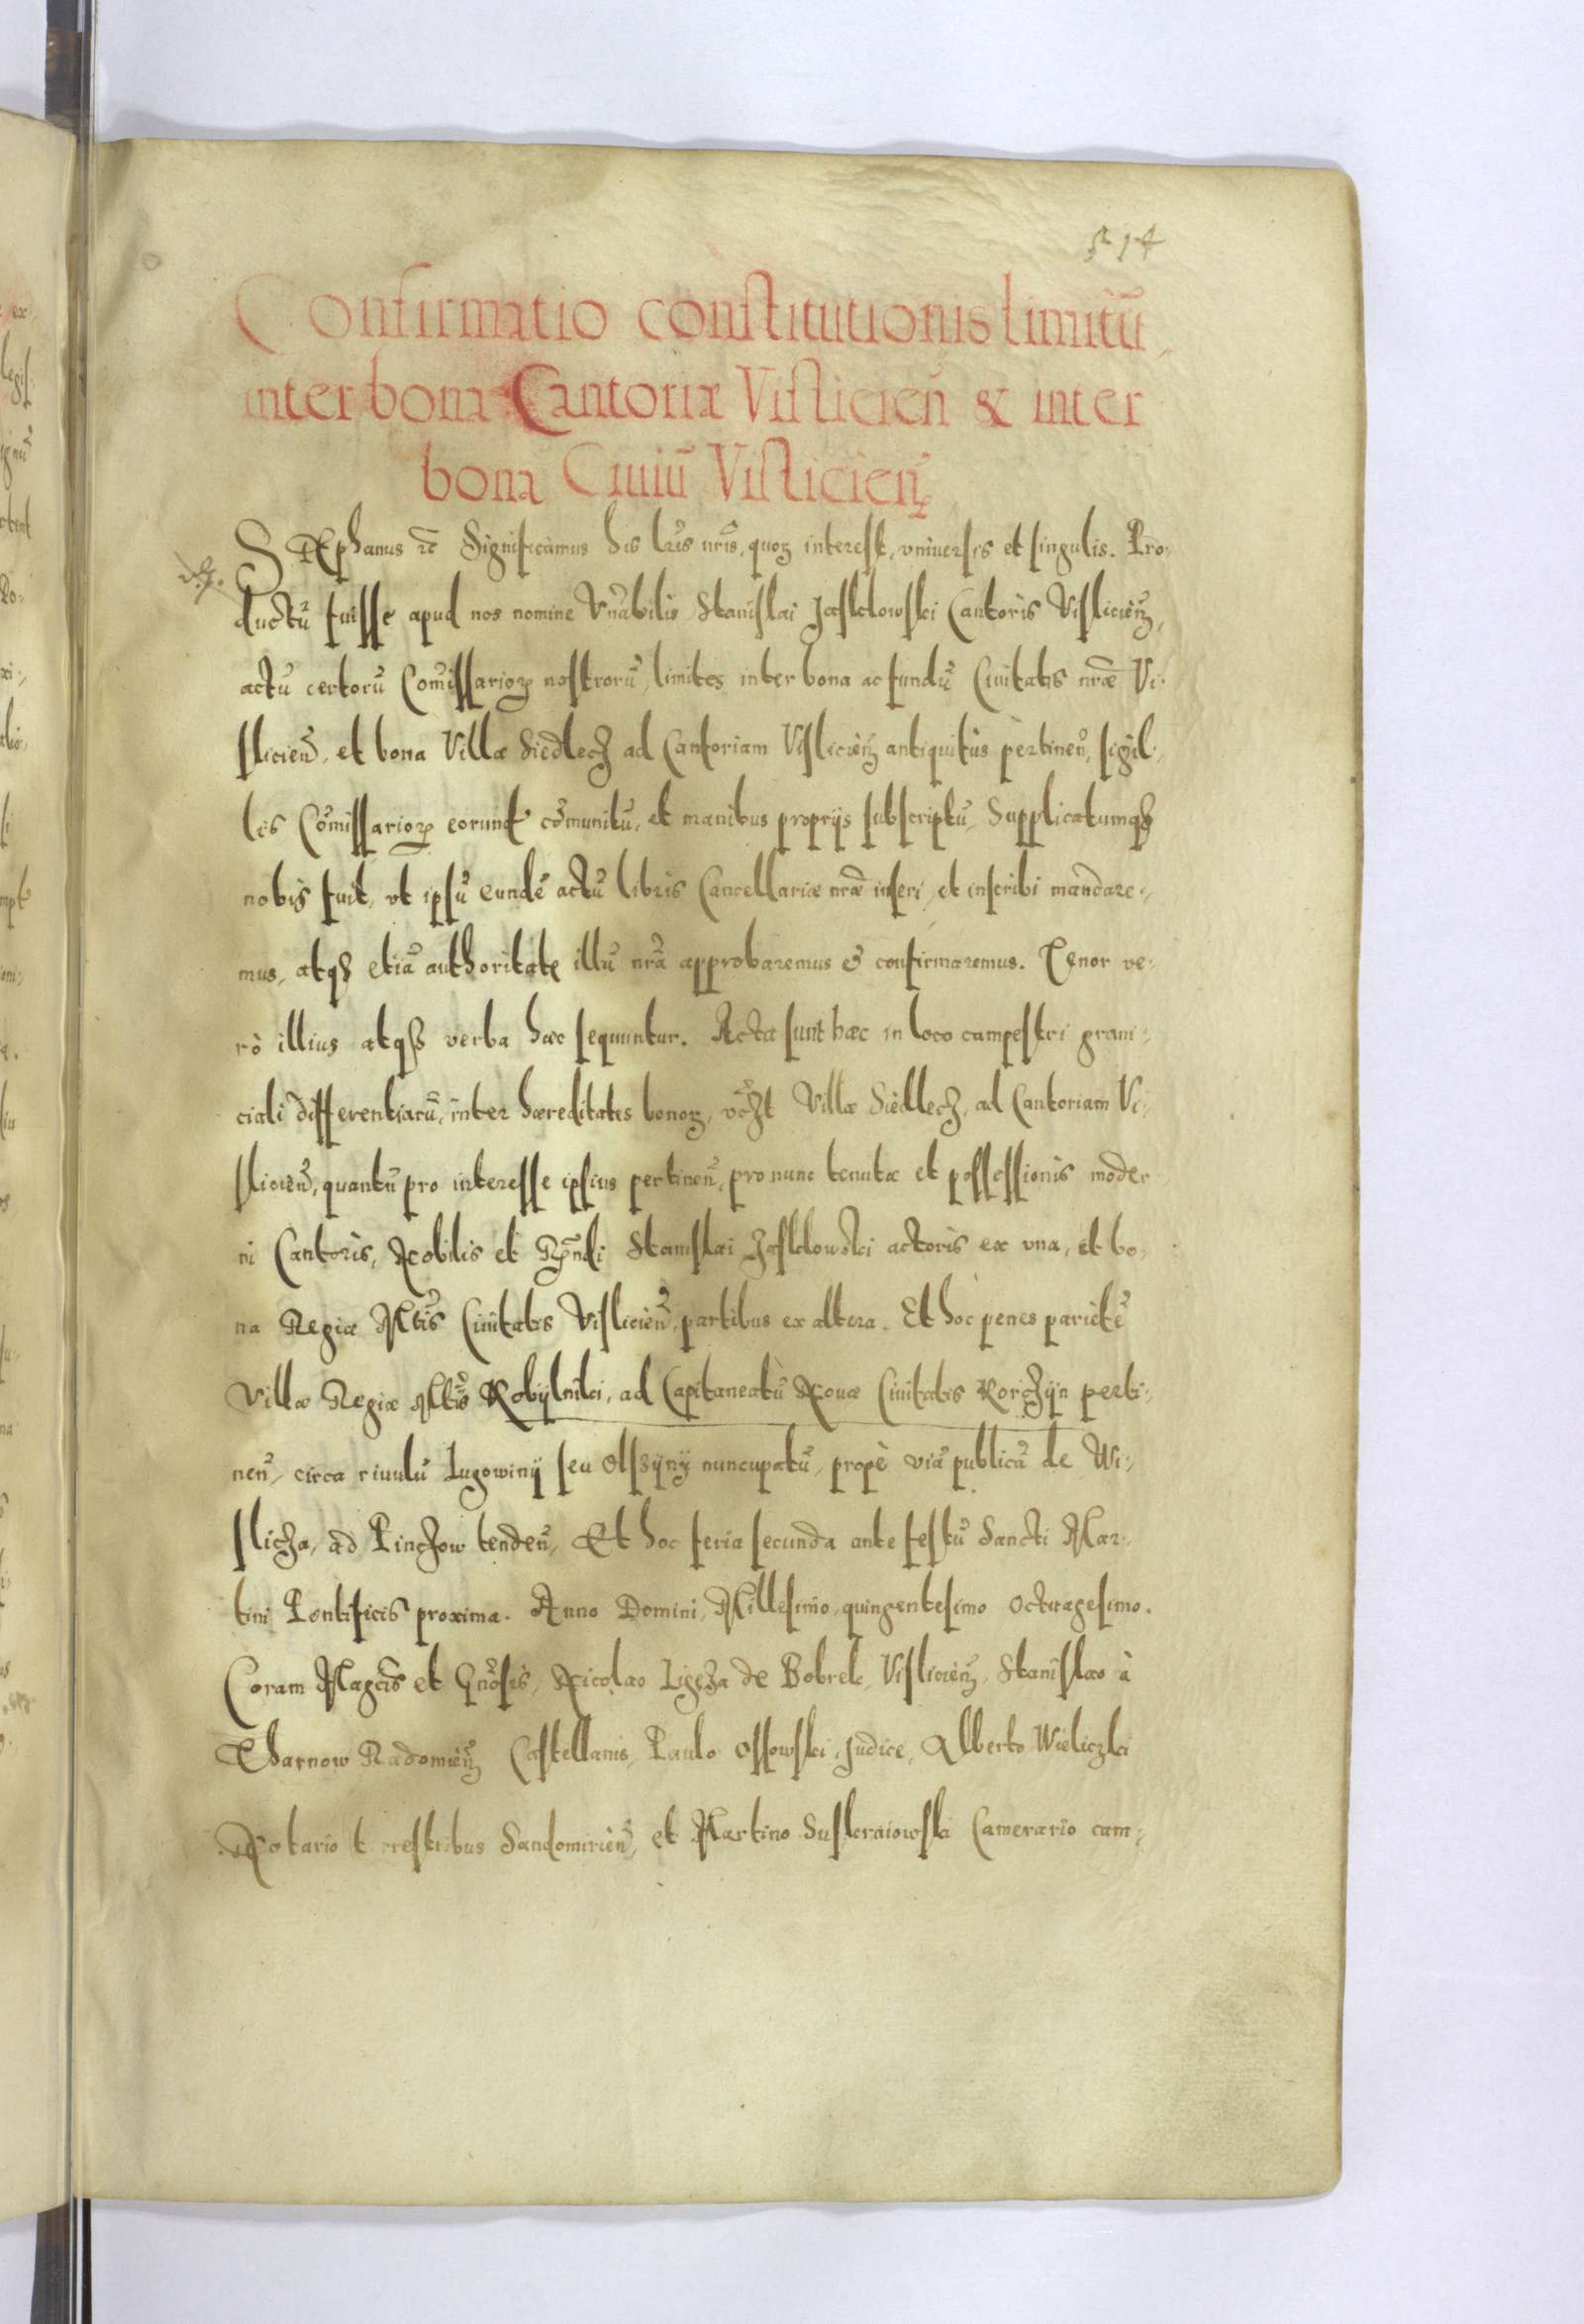 514
Confirmatio constitutionis limitũ,
inter bona Cantoriæ Vislicieñ & inter
bona Ciuiũ Visliciens̃
STEphanus rc̃ Significamus his lr̃is nr̃is, quoꝝ interest, vniuersis et singulis. Pro-
ductũ fuisse apud nos nomine Vnãbilis Stanislai Jasklowski Cantoris Vislicieñ,
actũ certorũ Com̃issarioꝝ nostrorũ, limites inter bona ac fundũ Ciuitatis nr̃æ Vi-
slicieñ, et bona Villæ Siedlecz ad Cantoriam Vislicieñ antiquitùs pertineñ, sigil-
lis Com̃issarioꝝ eorund̃ com̃unitũ, et manibus proprijs subscriptũ, Supplicatumqꝫ
nobis fuit, vt ipsũ eundẽ actũ libris Cancellariæ nr̃æ inseri, et inscribi mandare-
mus, atqꝫ etiã authoritate illũ nr̃a approbaremus & confirmaremus. Tenor ve-
rò illius atqꝫ verba hæc sequuntur. Acta sunt hæc in loco campestri grani-
ciali differentiarũ, inter hæreditates bonoꝝ, vcz̃t Villæ Siedlecz, ad Cantoriam Vi-
slicieñ, quantũ pro interesse ipsius pertineñ, pro nunc tenutæ et possessionis moder
ni Cantoris, Nobilis et Rṽndi Stanislai Jasklowski actoris ex vna, et bo-
na Regiæ Mt̃is Ciuitatis Vislicieñ, partibus ex altera. Et hoc penes parietẽ
Villæ Regiæ Mt̃is Kobÿlniki, ad Capitaneatũ Nouæ Ciuitatis Korczÿn perti-
neñ, circa riuulũ Lugowinÿ seu Olszÿnÿ nuncupatũ, propè viã publicã de Wi-
slicza, ad Pinczow tendeñ, Et hoc feria secunda ante festũ Sancti Mar-
tini Pontificis proxima. Anno Domini, Millesimo, quingentesimo Octuagesimo.
Coram Magc̃is et Gñosis, Nicolao Ligęza de Bobrek, Vislicieñ, Stanislao à
Tharnow Radomieñ Castellanis, Paulo Ossowski Judice, Alberto Wieliczki
Notario terrestribus Sandomirieñ, et Martino Suskraiowski Camerario cam-